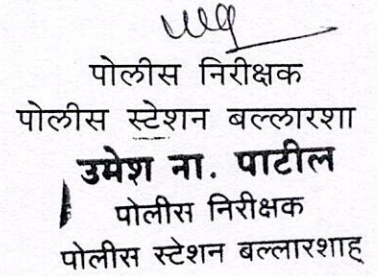 पोलीस निरीक्षक
पोलीस स्टेशन बल्लारशा
उमेश ना. पाटील
पोलीस निरीक्षक
पोलीस स्टेशन बल्लारशाह